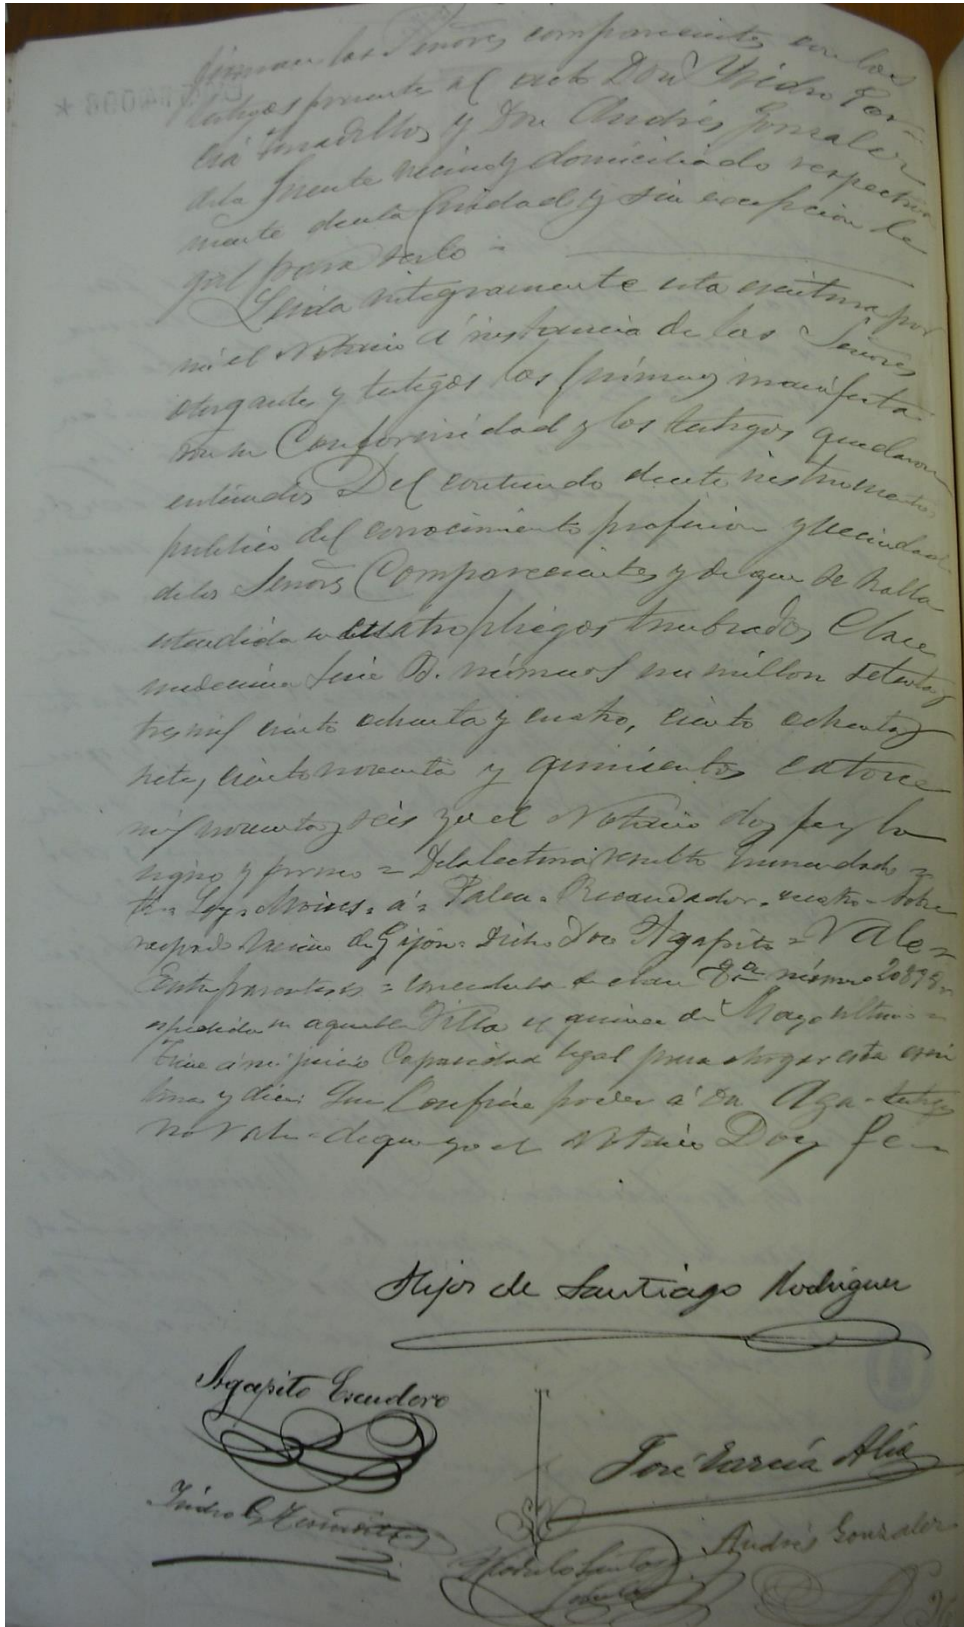 firman los Señores comparecientes con los
testigos presentes al acto Don Ysidro Gar
cia y Don Andrés Gonzalez
de la Fuente vecino y domiciliado respectiva
mente de esta Ciudad y sin excepcion le
gal para serlo =
Leida integramente esta escritura por
mi el Notario á instancia de los Señores
otorgantes y testigos los primeros manifesta
ron su Conformidad y los testigos quedaron
enterados Del contenido de este instrumento
publico del conocimiento profesion y vecindad
de los Señores Comparecientes y de que se halla
estendida en cuatro pliegos timbrados Clase
undecima Serie B. números un millon setenta y
tres mil ciento ochenta y cuatro, ciento ochenta y
siete, ciento noventa y quinientos catorce
mil noventa y seis yo el Notario doy fe y lo
signo y firmo = De la lectura resulta enmendado =
Ley = á = Recaudador = cuatro = Sobre
raspado Vecino de Gijón = Dicho Don Agapito = Vale =
Entre parentesis = clase 8ª número
espedida en aquella Villa en quince de Mayo ultimo =
Tiene á mi juicio Capacidad legal para otorgar esta escri
tura y dice: Que Confiere poder á Dn Aga = testigos
No Vale = de que yo el Notario Doy fe =
Hijos de Santiago Rodriguez
Agapito Escudero
José García Alía
Isidro G.
Andrés Gonzalez
Santos